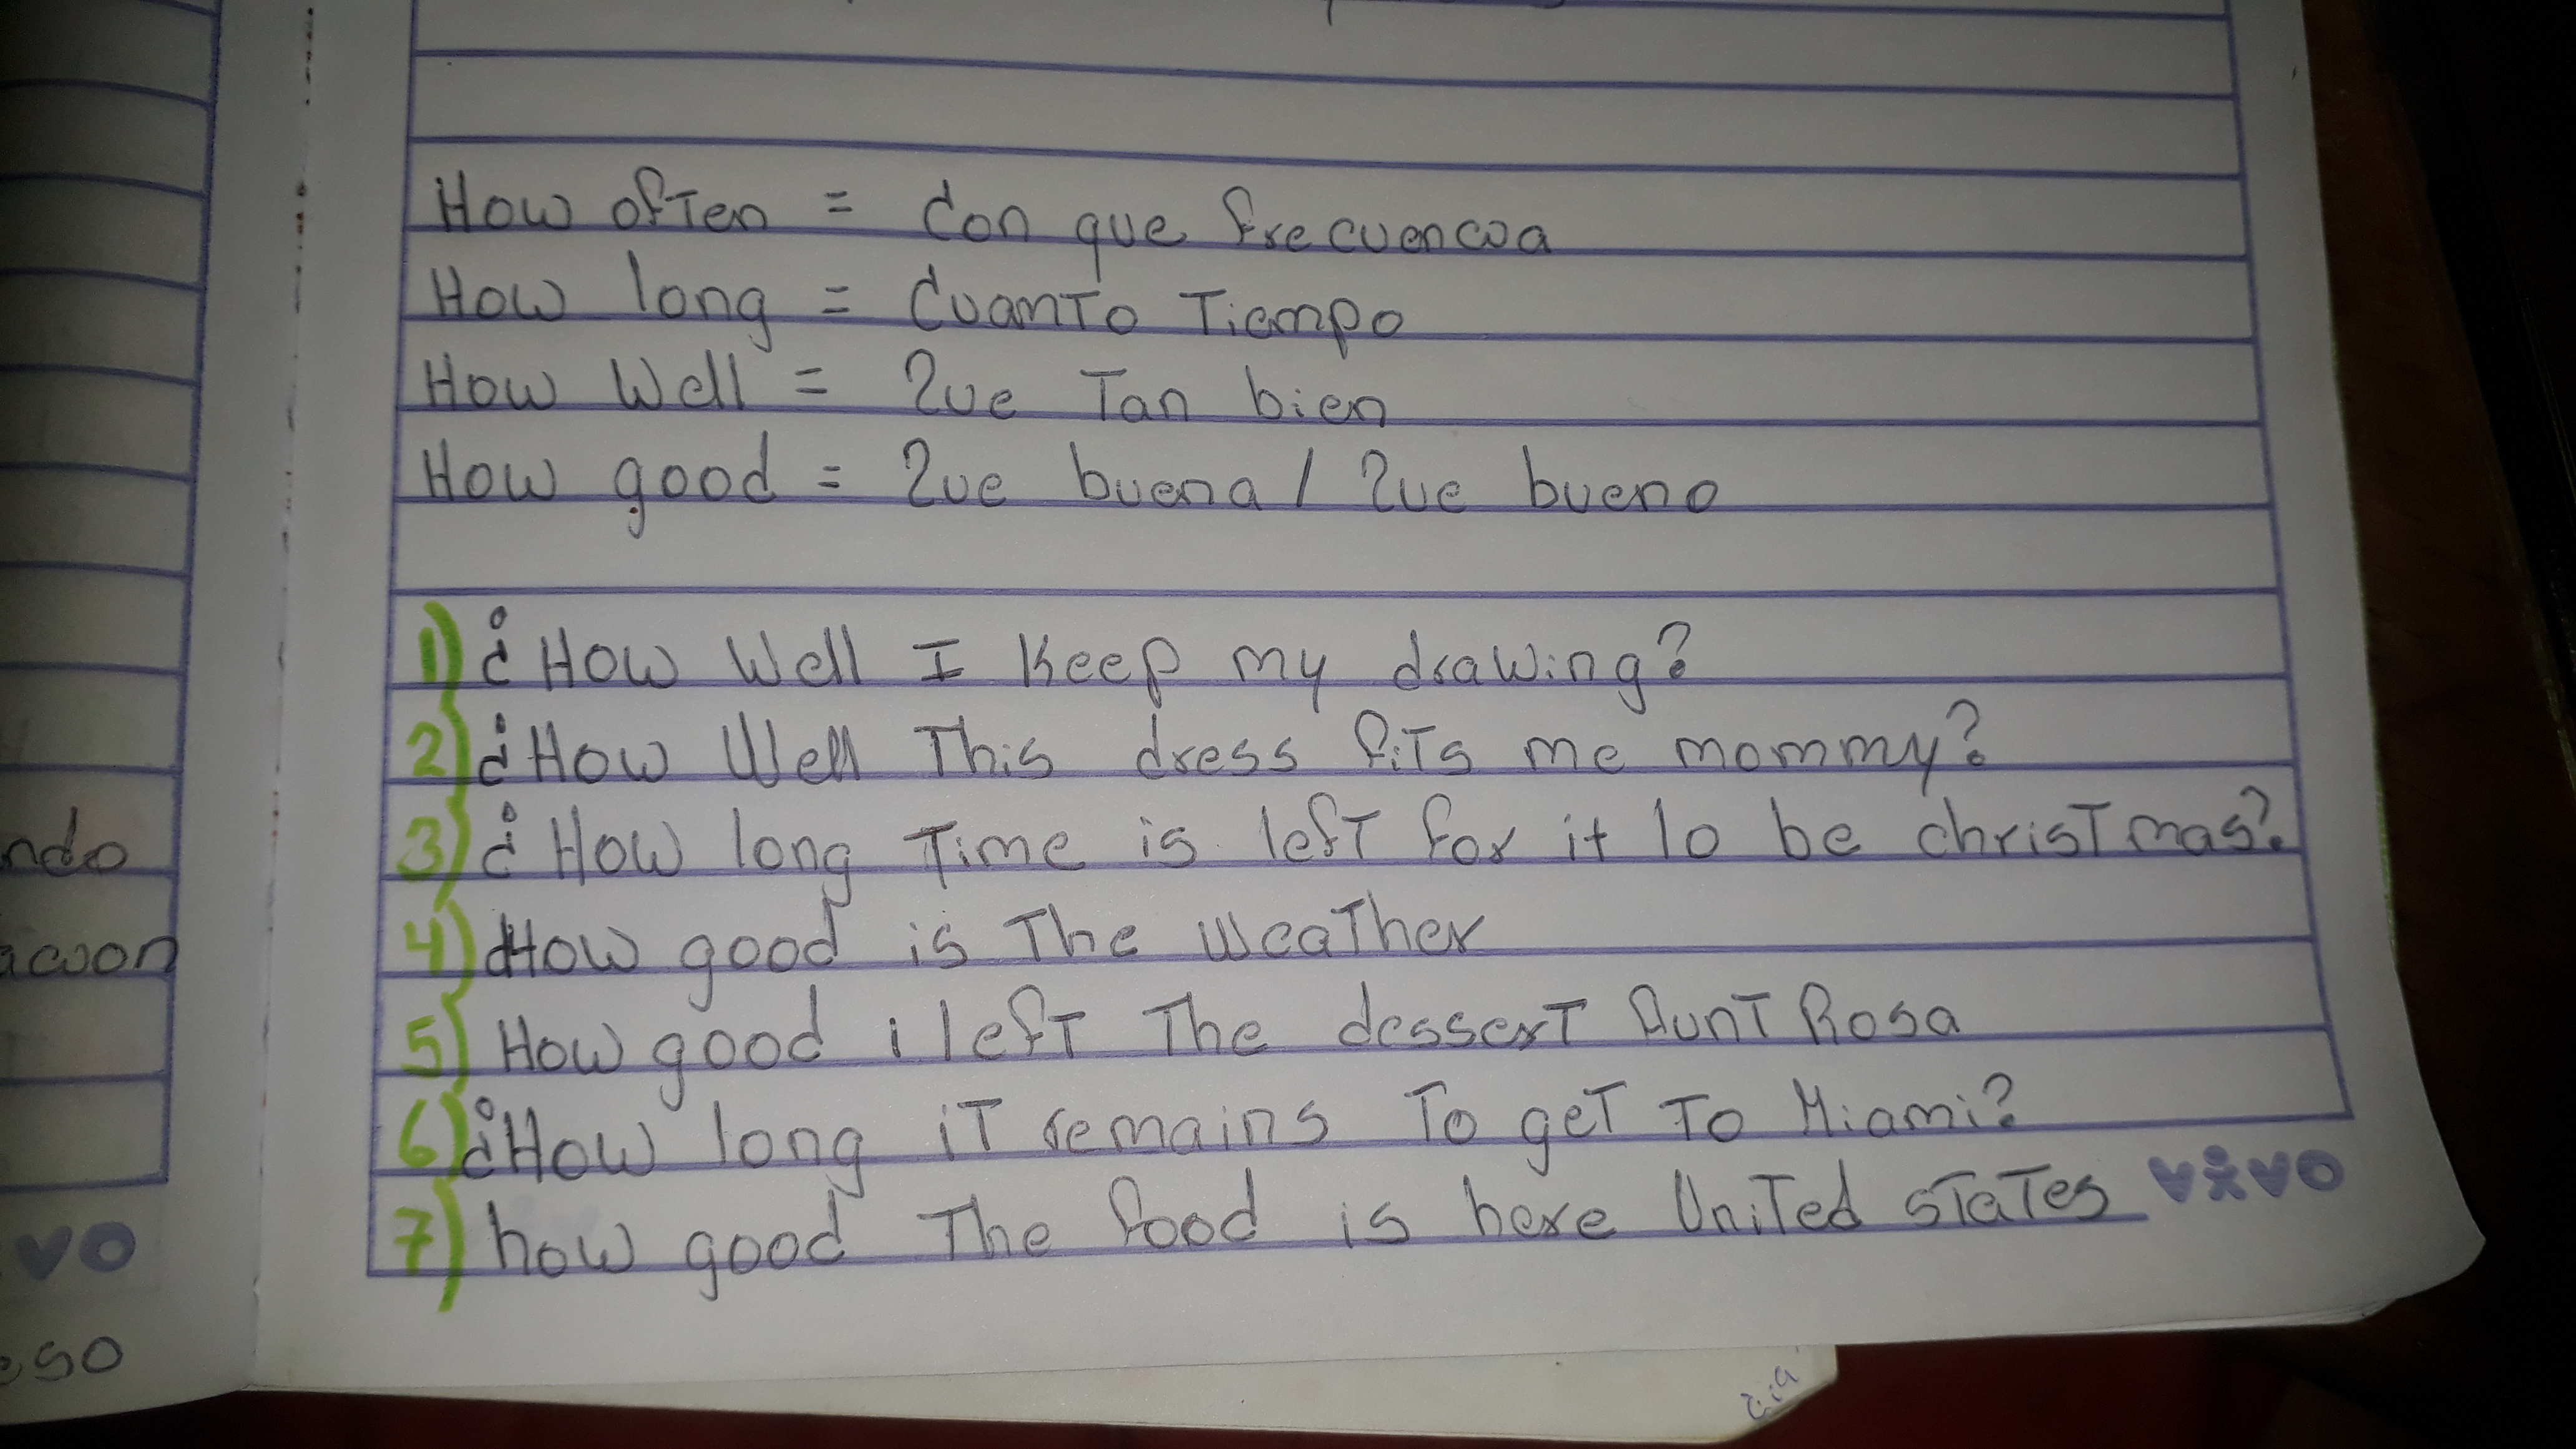 How often = Con que frecuencia
How long = Cuanto Tiempo
How Well = Que Tan bien
How good = Que buena / Que bueno
1) ¿How Well I Keep my drawing?
2) ¿How Well This dress fits me mommy?
3) ¿How long Time is left for it to be christmas?
4) How good is The Weather
5) How good i left The dessert Aunt Rosa
6) ¿How long iT remains To get To Miami?
7) how good The food is here United states
vivo
ndo
acion
vo
eso